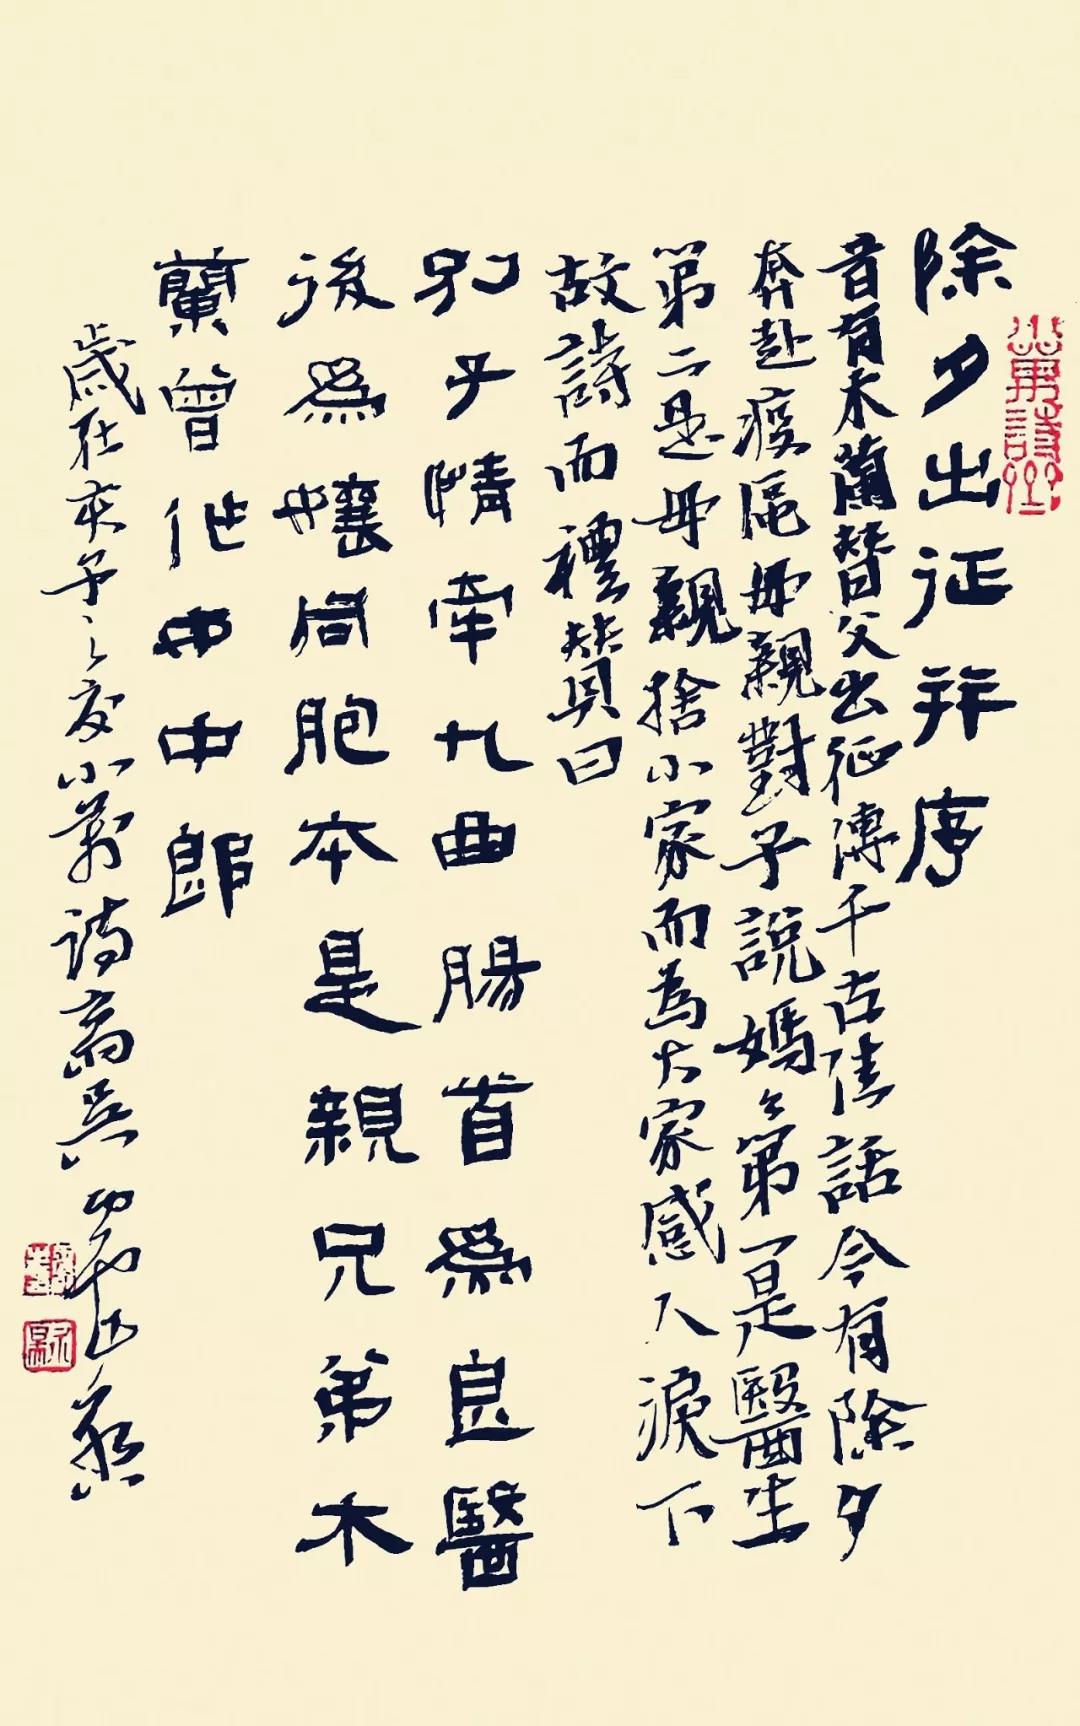 除夕出征并序
昔有木蘭替父出征傳千古佳話今有除夕
奔赴疫區母親對子說媽々第一是醫生
第二是母親捨小家而為大家感人淚下
故詩而禮贊曰
別子情牽九曲腸首為良醫
後為孃同胞本是親兄弟木
蘭曾作女中郎
歲在亥子之交小萬詩高興